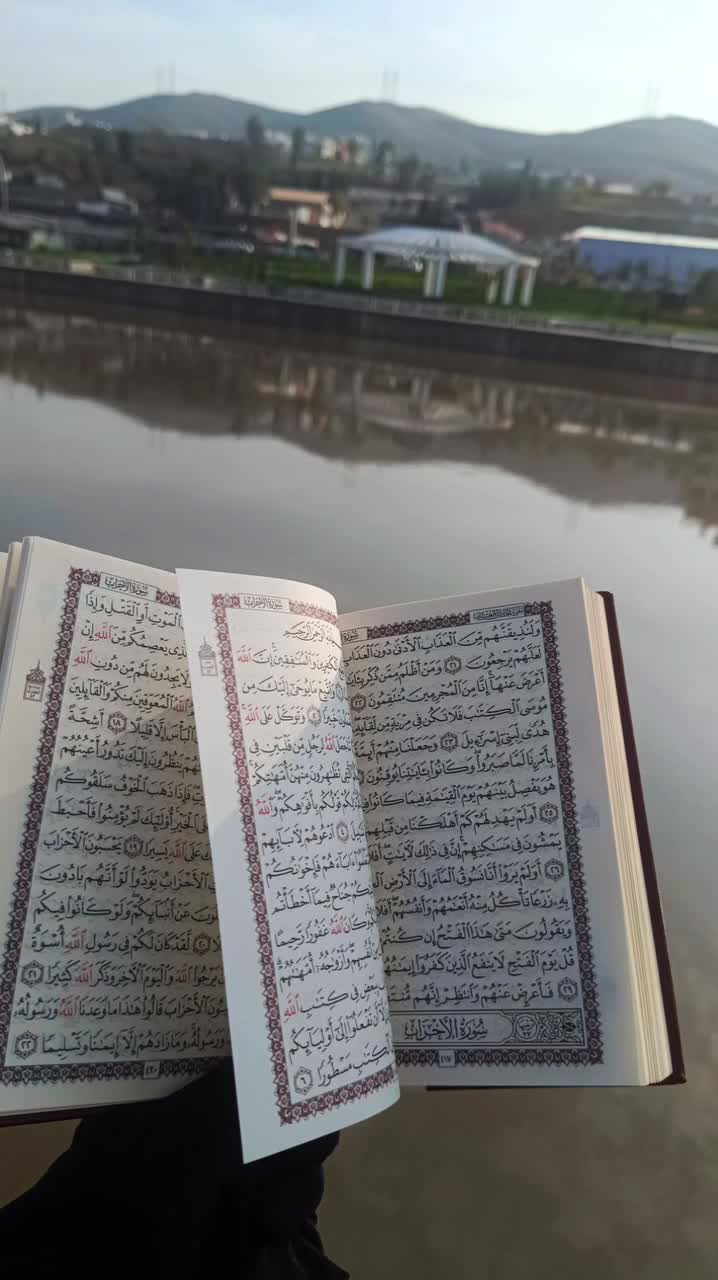 وَلَنُذِيقَنَّهُم مِّنَ ٱلْعَذَابِ ٱلْأَدْنَىٰ دُونَ ٱلْعَذَابِ
لَعَلَّهُمْ يَرْجِعُونَ ٢١ وَمَنْ أَظْلَمُ مِمَّن ذُكِّرَ بِـَٔايَٰتِ
أَعْرَضَ عَنْهَآ إِنَّا مِنَ ٱلْمُجْرِمِينَ مُنتَقِمُونَ ٢٢
مُوسَى ٱلْكِتَٰبَ فَلَا تَكُن فِى مِرْيَةٍ مِّن لِّقَآئِهِۦ
هُدًى لِّبَنِىٓ إِسْرَٰٓءِيلَ ٢٣ وَجَعَلْنَا مِنْهُمْ أَئِمَّةً
بِأَمْرِنَا لَمَّا صَبَرُوا۟ وَكَانُوا۟ بِـَٔايَٰتِنَا يُوقِنُونَ
هُوَ يَفْصِلُ بَيْنَهُمْ يَوْمَ ٱلْقِيَٰمَةِ فِيمَا كَانُوا۟
٢٥ أَوَلَمْ يَهْدِ لَهُمْ كَمْ أَهْلَكْنَا مِن قَبْلِهِم
يَمْشُونَ فِى مَسَٰكِنِهِمْ إِنَّ فِى ذَٰلِكَ لَـَٔايَٰتٍ أَفَلَا
٢٦ أَوَلَمْ يَرَوْا۟ أَنَّا نَسُوقُ ٱلْمَآءَ إِلَى ٱلْأَرْضِ
بِهِۦ زَرْعًا تَأْكُلُ مِنْهُ أَنْعَٰمُهُمْ وَأَنفُسُهُمْ أَفَلَا
وَيَقُولُونَ مَتَىٰ هَٰذَا ٱلْفَتْحُ إِن كُنتُمْ
قُلْ يَوْمَ ٱلْفَتْحِ لَا يَنفَعُ ٱلَّذِينَ كَفَرُوٓا۟ إِيمَٰنُهُمْ
٢٩ فَأَعْرِضْ عَنْهُمْ وَٱنتَظِرْ إِنَّهُم
سُورَةُ الأَحْزَابِ
٤١٧
سُورَةُ الأَحْزَابِ
ٱللَّهِ ٱلرَّحْمَٰنِ ٱلرَّحِيمِ
ٱلْكَٰفِرِينَ وَٱلْمُنَٰفِقِينَ إِنَّ ٱللَّهَ
وَٱتَّبِعْ مَا يُوحَىٰٓ إِلَيْكَ مِن
خَبِيرًا ٢ وَتَوَكَّلْ عَلَى ٱللَّهِ
جَعَلَ ٱللَّهُ لِرَجُلٍ مِّن قَلْبَيْنِ فِى
ٱلَّٰٓـِٔى تُظَٰهِرُونَ مِنْهُنَّ أُمَّهَٰتِكُمْ
قَوْلُكُم بِأَفْوَٰهِكُمْ وَٱللَّهُ
٤ ٱدْعُوهُمْ لِـَٔابَآئِهِمْ
ءَابَآءَهُمْ فَإِخْوَٰنُكُمْ
جُنَاحٌ فِيمَآ أَخْطَأْتُم
وَكَانَ ٱللَّهُ غَفُورًا رَّحِيمًا
أَنفُسِهِمْ وَأَزْوَٰجُهُۥٓ أُمَّهَٰتُهُمْ
بِبَعْضٍ فِى كِتَٰبِ ٱللَّهِ
أَن تَفْعَلُوٓا۟ إِلَىٰٓ أَوْلِيَآئِكُم
ٱلْكِتَٰبِ مَسْطُورًا ٦
سُورَةُ الأَحْزَابِ
ٱلْمَوْتِ أَوِ ٱلْقَتْلِ وَإِذًا
ٱلَّذِى يَعْصِمُكُم مِّنَ ٱللَّهِ إِنْ
وَلَا يَجِدُونَ لَهُم مِّن دُونِ ٱللَّهِ
ٱللَّهُ ٱلْمُعَوِّقِينَ مِنكُمْ وَٱلْقَآئِلِينَ
ٱلْبَأْسَ إِلَّا قَلِيلًا ١٨ أَشِحَّةً
يَنظُرُونَ إِلَيْكَ تَدُورُ أَعْيُنُهُمْ
فَإِذَا ذَهَبَ ٱلْخَوْفُ سَلَقُوكُم
عَلَى ٱلْخَيْرِ أُو۟لَٰٓئِكَ لَمْ يُؤْمِنُوا۟ فَأَحْبَطَ
عَلَى ٱللَّهِ يَسِيرًا ١٩ يَحْسَبُونَ ٱلْأَحْزَابَ
ٱلْأَحْزَابُ يَوَدُّوا۟ لَوْ أَنَّهُم بَادُونَ
عَنْ أَنۢبَآئِكُمْ وَلَوْ كَانُوا۟ فِيكُم
لَّقَدْ كَانَ لَكُمْ فِى رَسُولِ ٱللَّهِ أُسْوَةٌ
يَرْجُوا۟ ٱللَّهَ وَٱلْيَوْمَ ٱلْـَٔاخِرَ وَذَكَرَ ٱللَّهَ كَثِيرًا ٢١
ٱلْأَحْزَابَ قَالُوا۟ هَٰذَا مَا وَعَدَنَا ٱللَّهُ وَرَسُولُهُۥ
وَرَسُولُهُۥ وَمَا زَادَهُمْ إِلَّآ إِيمَٰنًا وَتَسْلِيمًا ٢٢
٤٢٠